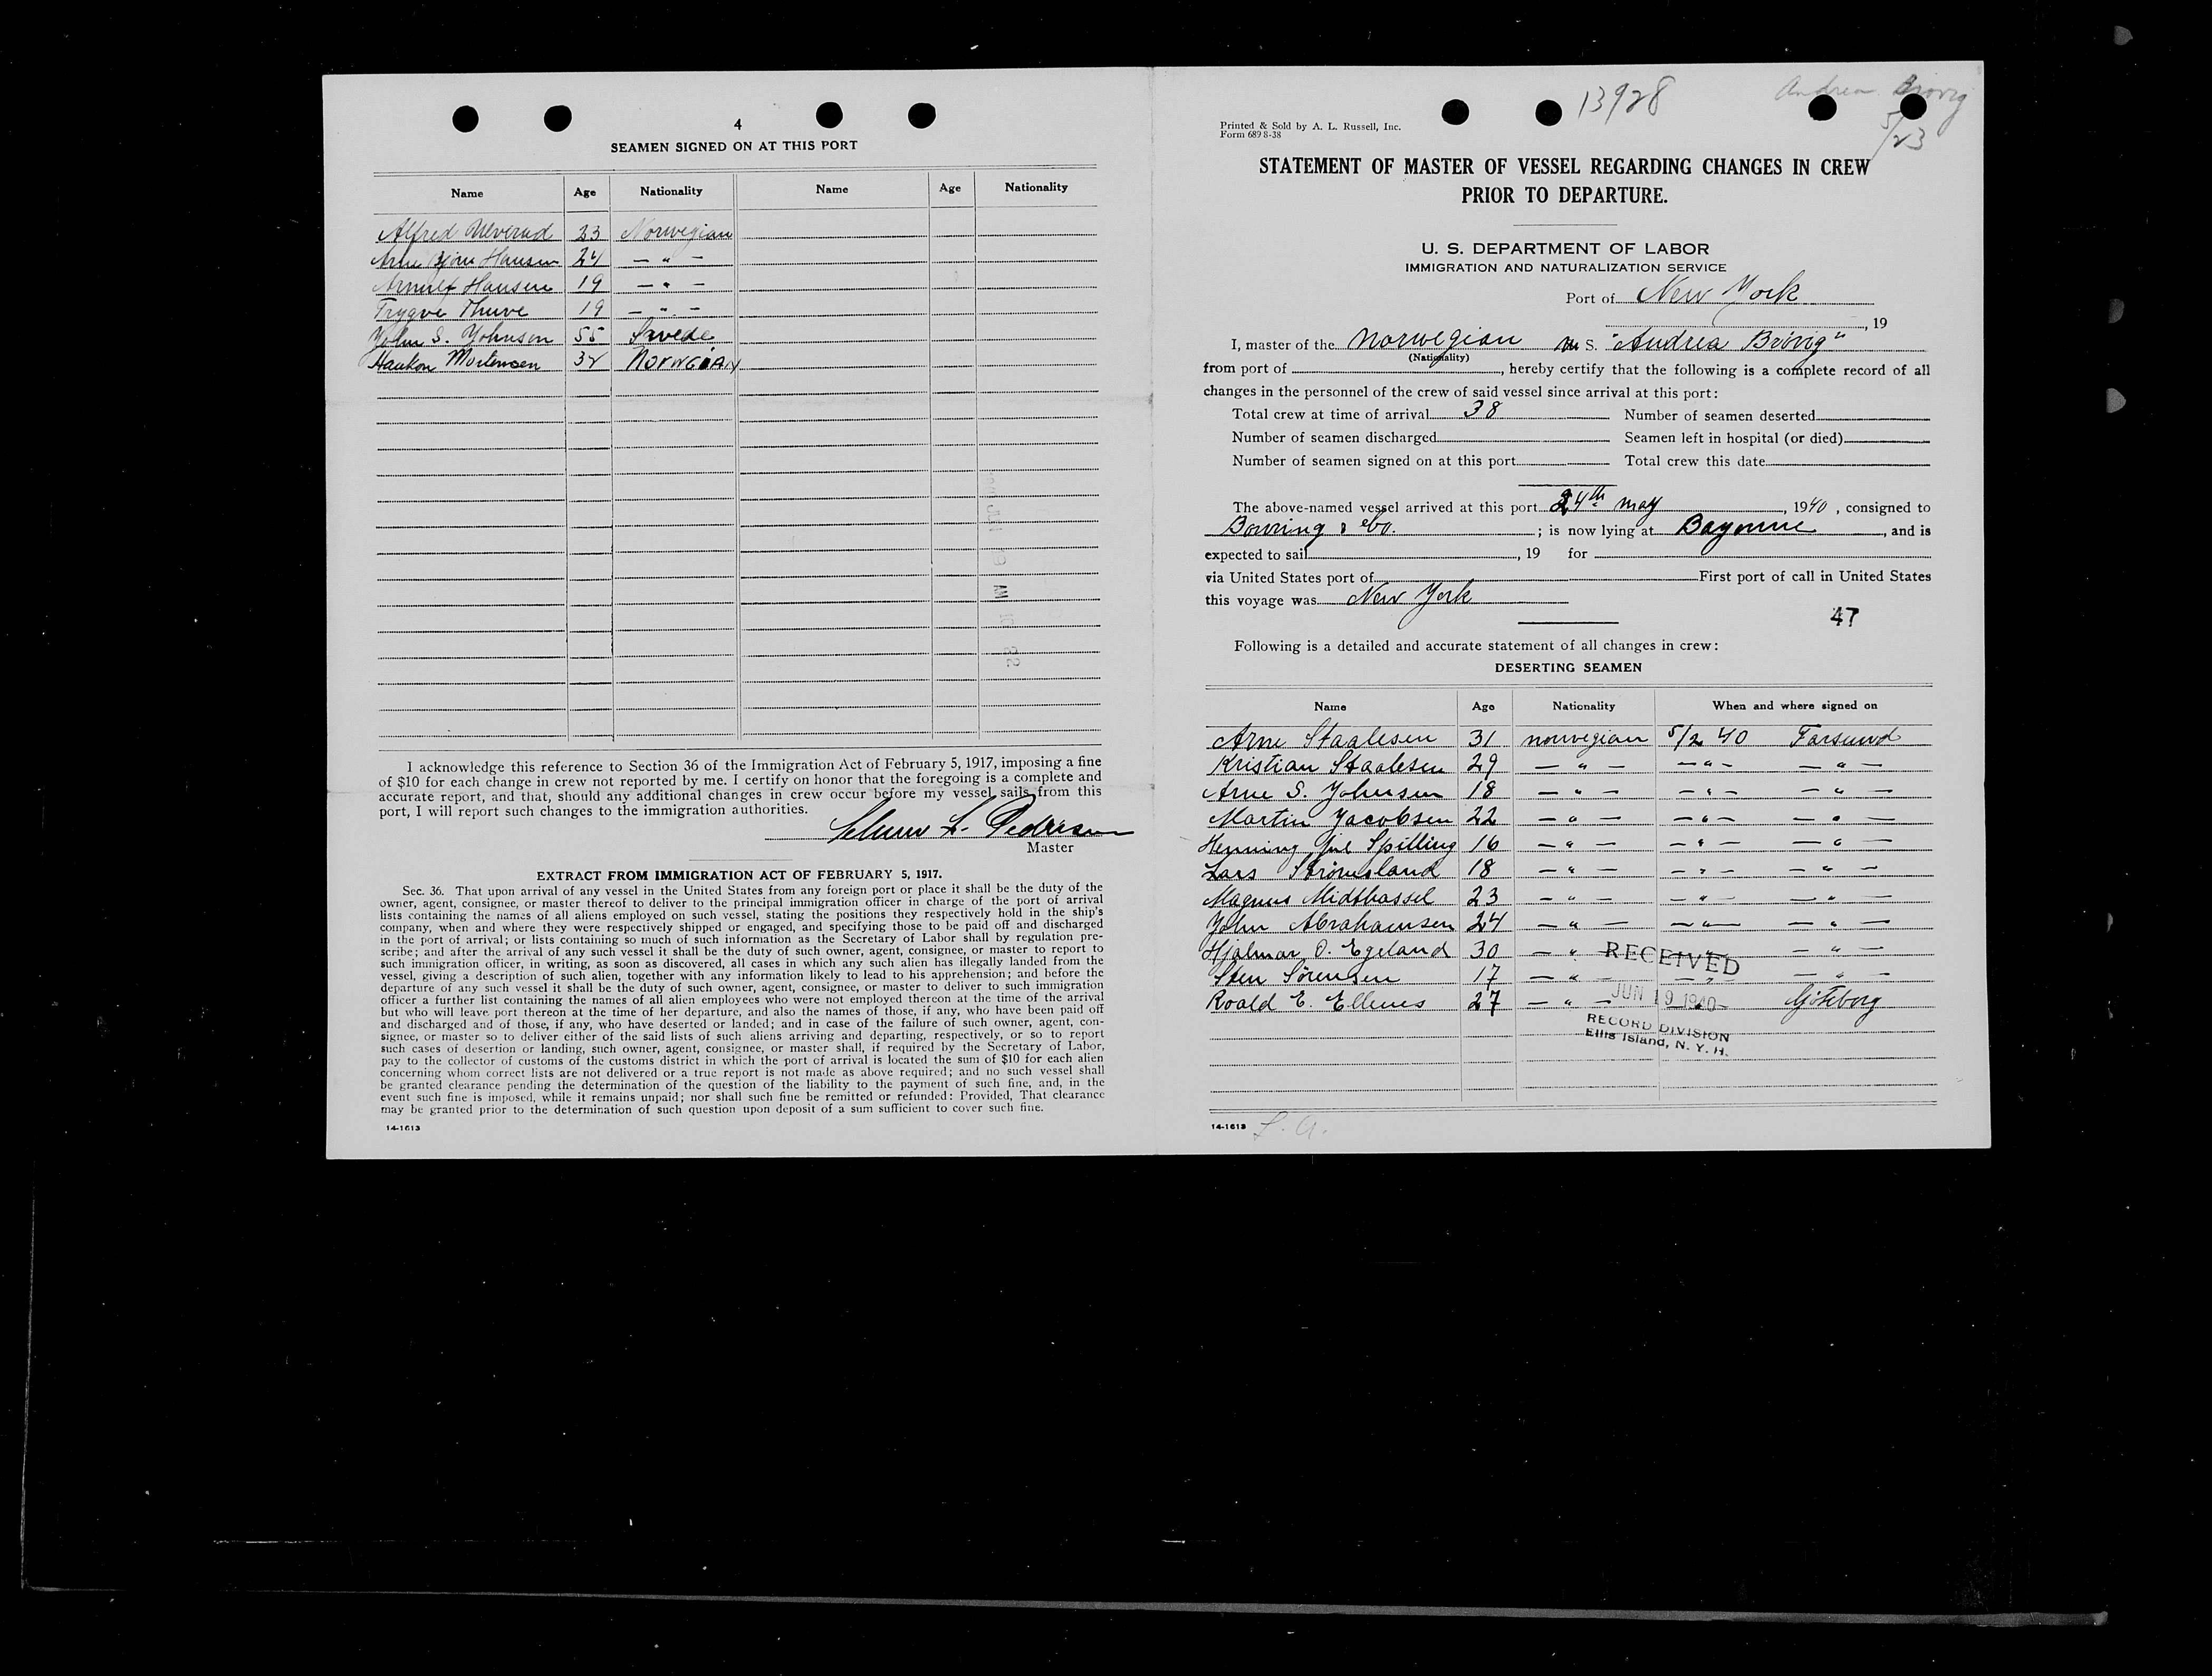 4
SEAMEN SIGNED ON AT THIS PORT
Name Age Nationality Name Age Nationality
Alfred 23 Norwegian
Arne Björn Hansen 24 — " —
Arnulf Hansen 19 — " —
Trygve Thuve 19 — " —
John S. Johnson 55 Swede
Haukon Mortensen 32 NORWGIAN
I acknowledge this reference to Section 36 of the Immigration Act of February 5, 1917, imposing a fine
of $10 for each change in crew not reported by me. I certify on honor that the foregoing is a complete and
accurate report, and that, should any additional changes in crew occur before my vessel sails from this
port, I will report such changes to the immigration authorities.
Pedersen
Master
EXTRACT FROM IMMIGRATION ACT OF FEBRUARY 5, 1917.
Sec. 36. That upon arrival of any vessel in the United States from any foreign port or place it shall be the duty of the
owner, agent, consignee, or master thereof to deliver to the principal immigration officer in charge of the port of arrival
lists containing the names of all aliens employed on such vessel, stating the positions they respectively hold in the ship's
company, when and where they were respectively shipped or engaged, and specifying those to be paid off and discharged
in the port of arrival; or lists containing so much of such information as the Secretary of Labor shall by regulation pre-
scribe; and after the arrival of any such vessel it shall be the duty of such owner, agent, consignee, or master to report to
such immigration officer, in writing, as soon as discovered, all cases in which any such alien has illegally landed from the
vessel, giving a description of such alien, together with any information likely to lead to his apprehension; and before the
departure of any such vessel it shall be the duty of such owner, agent, consignee, or master to deliver to such immigration
officer a further list containing the names of all alien employees who were not employed thereon at the time of the arrival
but who will leave port thereon at the time of her departure, and also the names of those, if any, who have been paid off
and discharged and of those, if any, who have deserted or landed; and in case of the failure of such owner, agent, con-
signee, or master so to deliver either of the said lists of such aliens arriving and departing, respectively, or so to report
such cases of desertion or landing, such owner, agent, consignee, or master shall, if required by the Secretary of Labor,
pay to the collector of customs of the customs district in which the port of arrival is located the sum of $10 for each alien
concerning whom correct lists are not delivered or a true report is not made as above required; and no such vessel shall
be granted clearance pending the determination of the question of the liability to the payment of such fine, and, in the
event such fine is imposed, while it remains unpaid; nor shall such fine be remitted or refunded: Provided, That clearance
may be granted prior to the determination of such question upon deposit of a sum sufficient to cover such fine.
14-1613
13928
Andrea Brovig
5/23
Printed & Sold by A. L. Russell, Inc.
Form 689 8-38
STATEMENT OF MASTER OF VESSEL REGARDING CHANGES IN CREW
PRIOR TO DEPARTURE.
U. S. DEPARTMENT OF LABOR
IMMIGRATION AND NATURALIZATION SERVICE
Port of New York
, 19
I, master of the norwegian M S. "Andrea Brövig"
(Nationality)
from port of , hereby certify that the following is a complete record of all
changes in the personnel of the crew of said vessel since arrival at this port:
Total crew at time of arrival 38 Number of seamen deserted
Number of seamen discharged Seamen left in hospital (or died)
Number of seamen signed on at this port Total crew this date
The above-named vessel arrived at this port 24th may , 1940 , consigned to
Bowring & Co. ; is now lying at Bayonne , and is
expected to sail , 19 for
via United States port of First port of call in United States
this voyage was New York
47
Following is a detailed and accurate statement of all changes in crew:
DESERTING SEAMEN
Name Age Nationality When and where signed on
Arne Staalesen 31 norwegian 5/2 40 Farsund
Kristian Staalesen 29 — " — — " — — " —
Arne S. Johnsen 18 — " — — " — — " —
Martin Jacobsen 22 — " — — " — — " —
Henning Juel Spilling 16 — " — — " — — " —
Lars Strömsland 18 — " — — " — — " —
Magnus Midthassel 23 — " — — " — — " —
John Abrahamsen 24 — " — — " — — " —
Hjalmar O. Egeland 30 — " — — " — — " —
Sten Sörensen 17 — " — — " — — " —
Roald E. Ellenes 27 — " — — " — Göteborg
RECEIVED
JUN 19 1940
RECORD DIVISION
Ellis Island, N. Y. H.
14-1613 L. A.